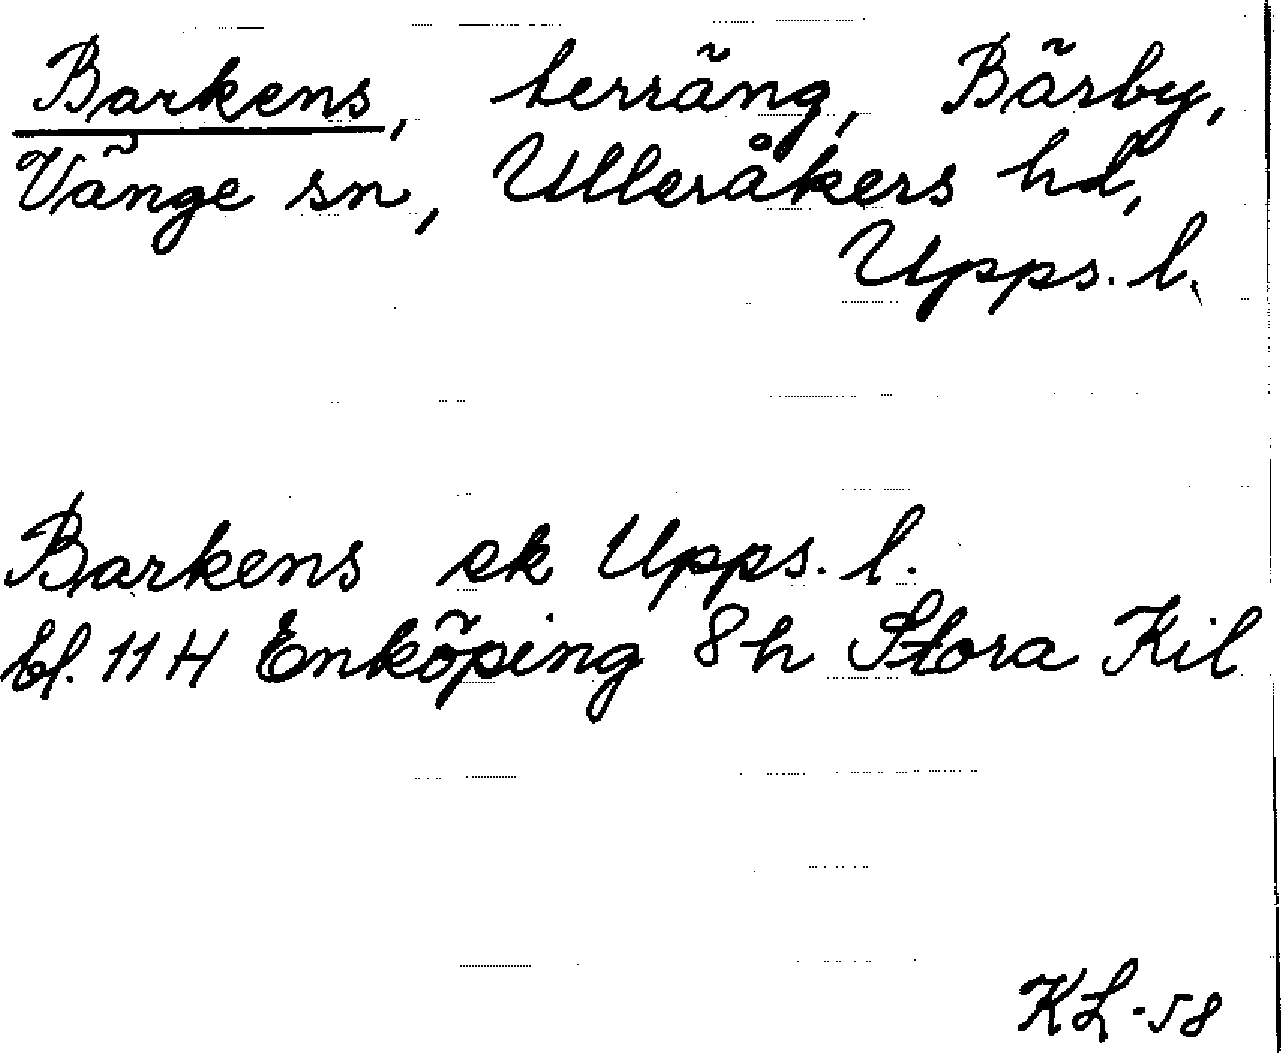 Barkens, terräng, Bärby,
Vänge sn, Ulleråkers hd,
Upps. l.
Barkens ek Upps. l.
bl. 11 H Enköping 8h Stora Kil
KL-58